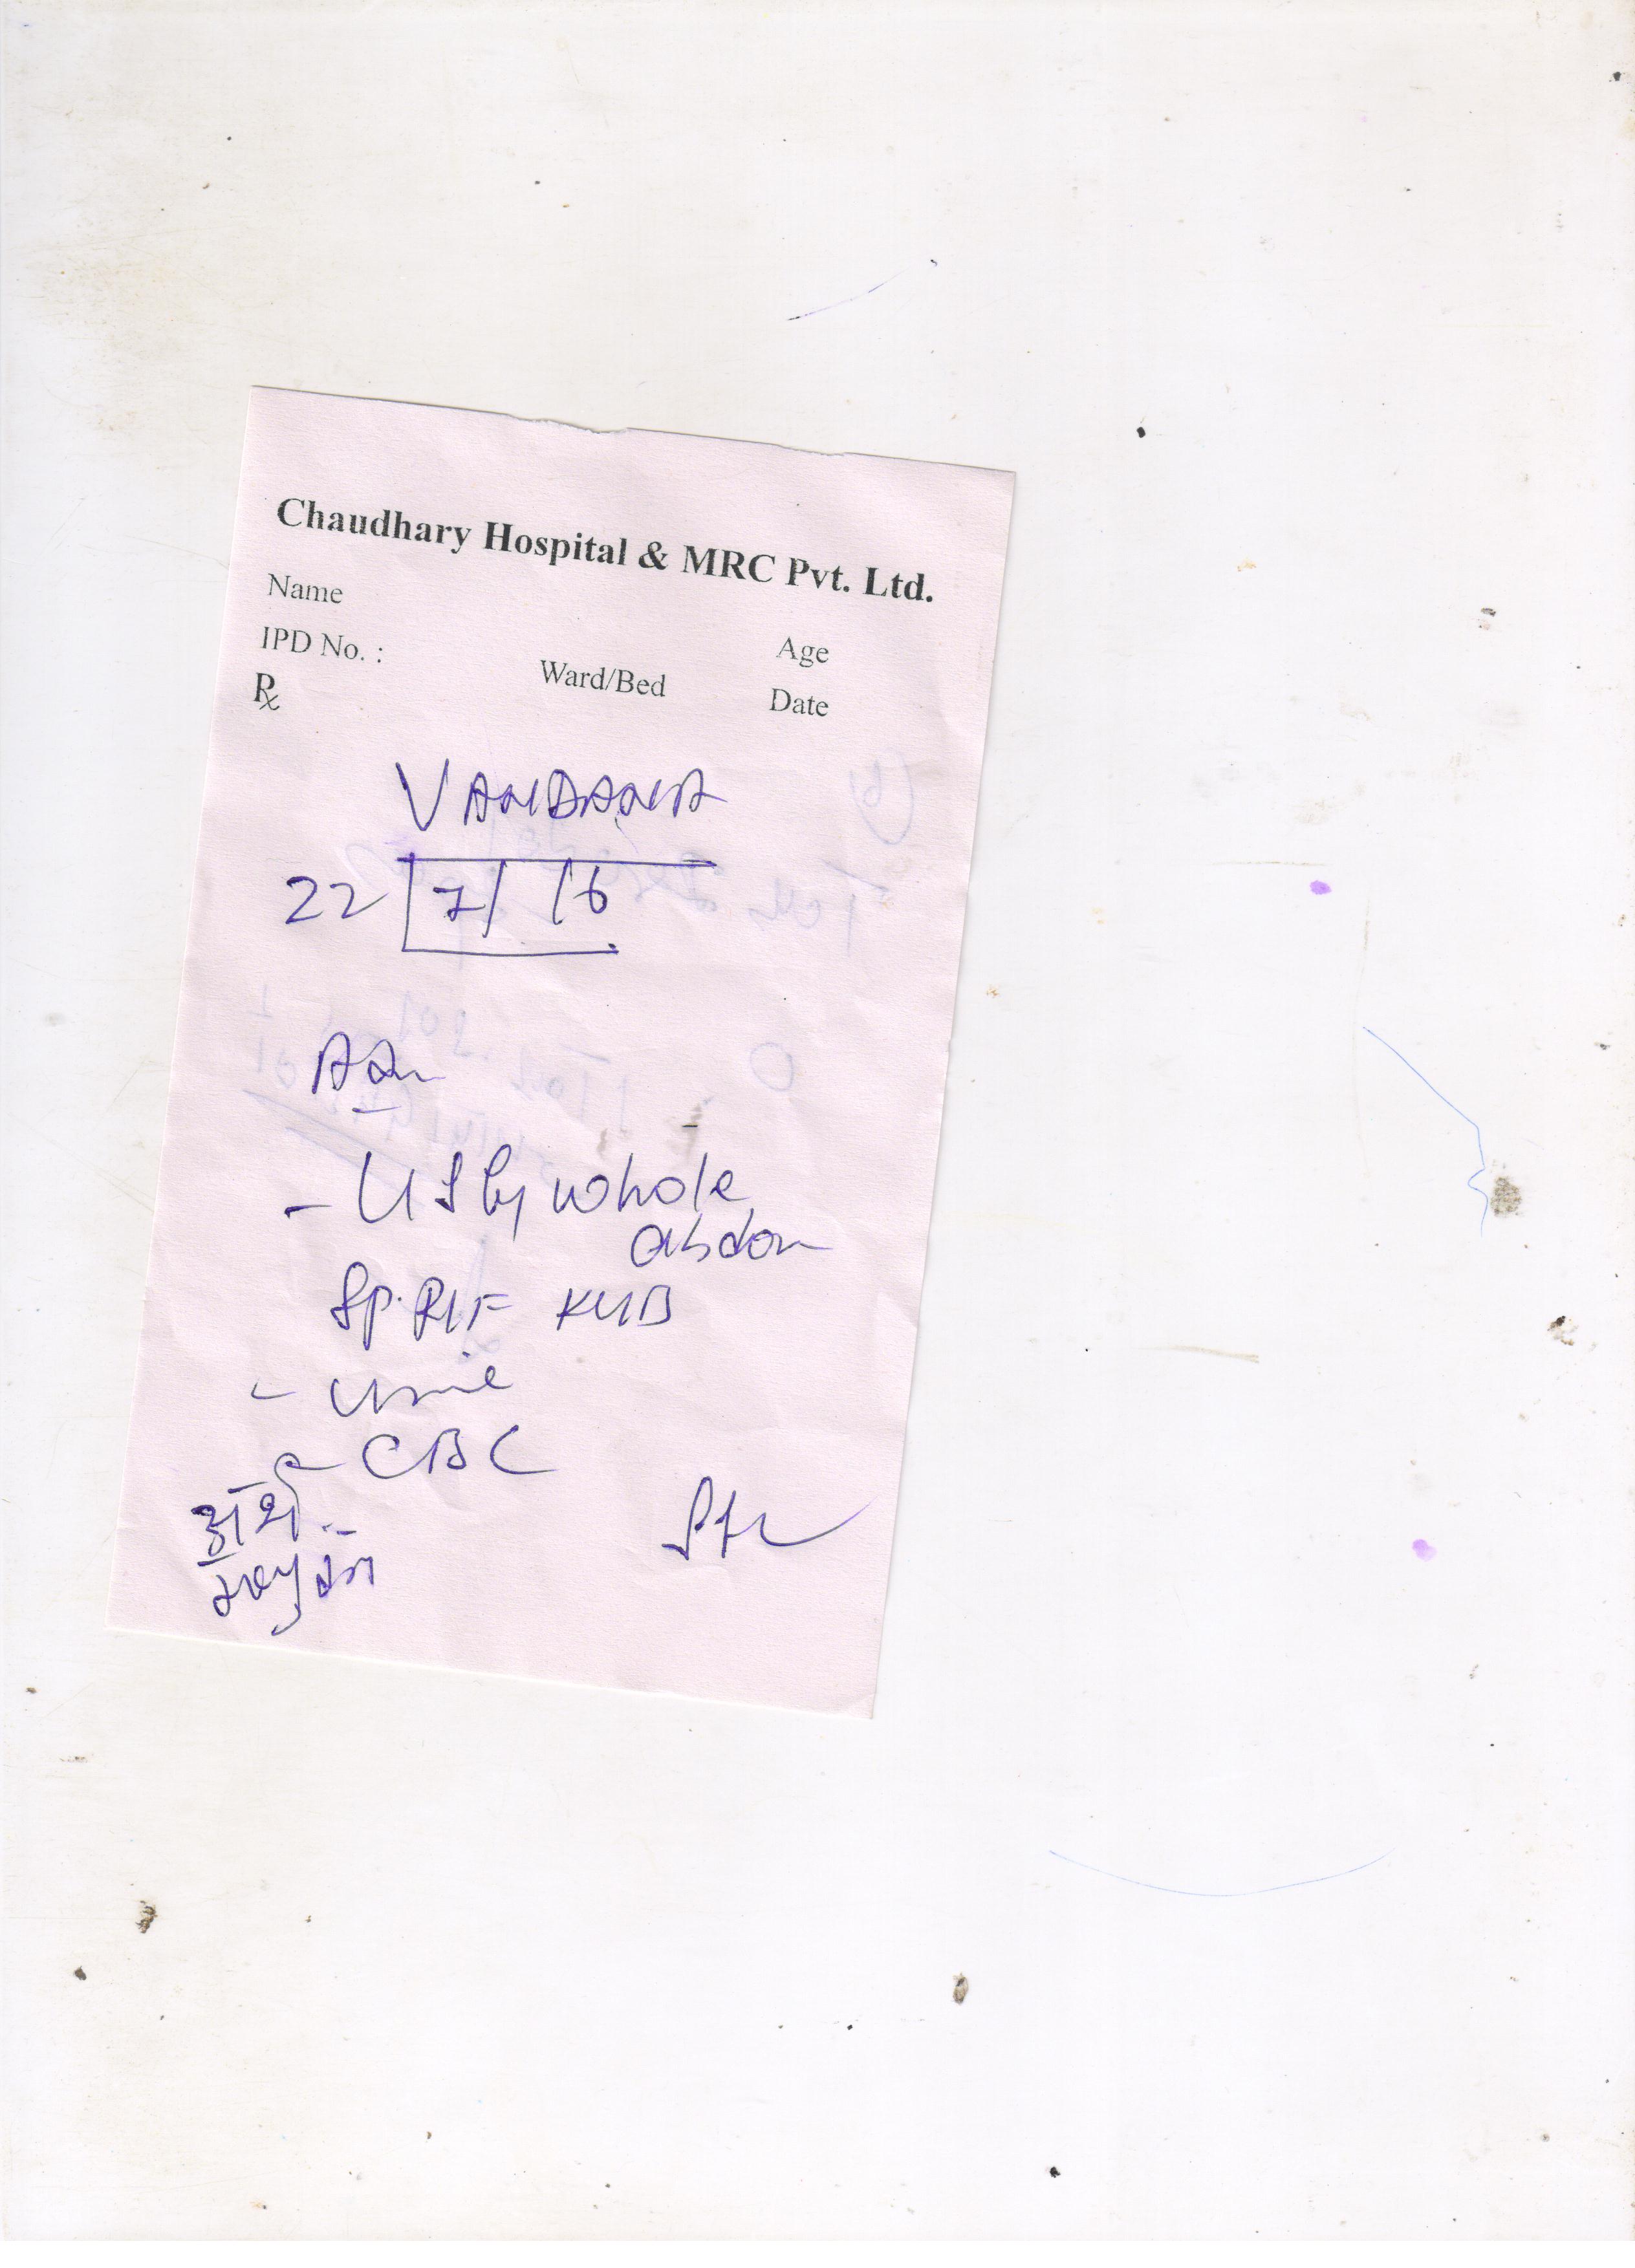 Chaudhary Hospital & MRC Pvt. Ltd.
Name
Age
IPD No. :
Ward/Bed
Date
Rx
VANDANA
22 7/ /6
Adv
- USG whole
abdom
Sp. RIF KUB
- Urine
- CBC